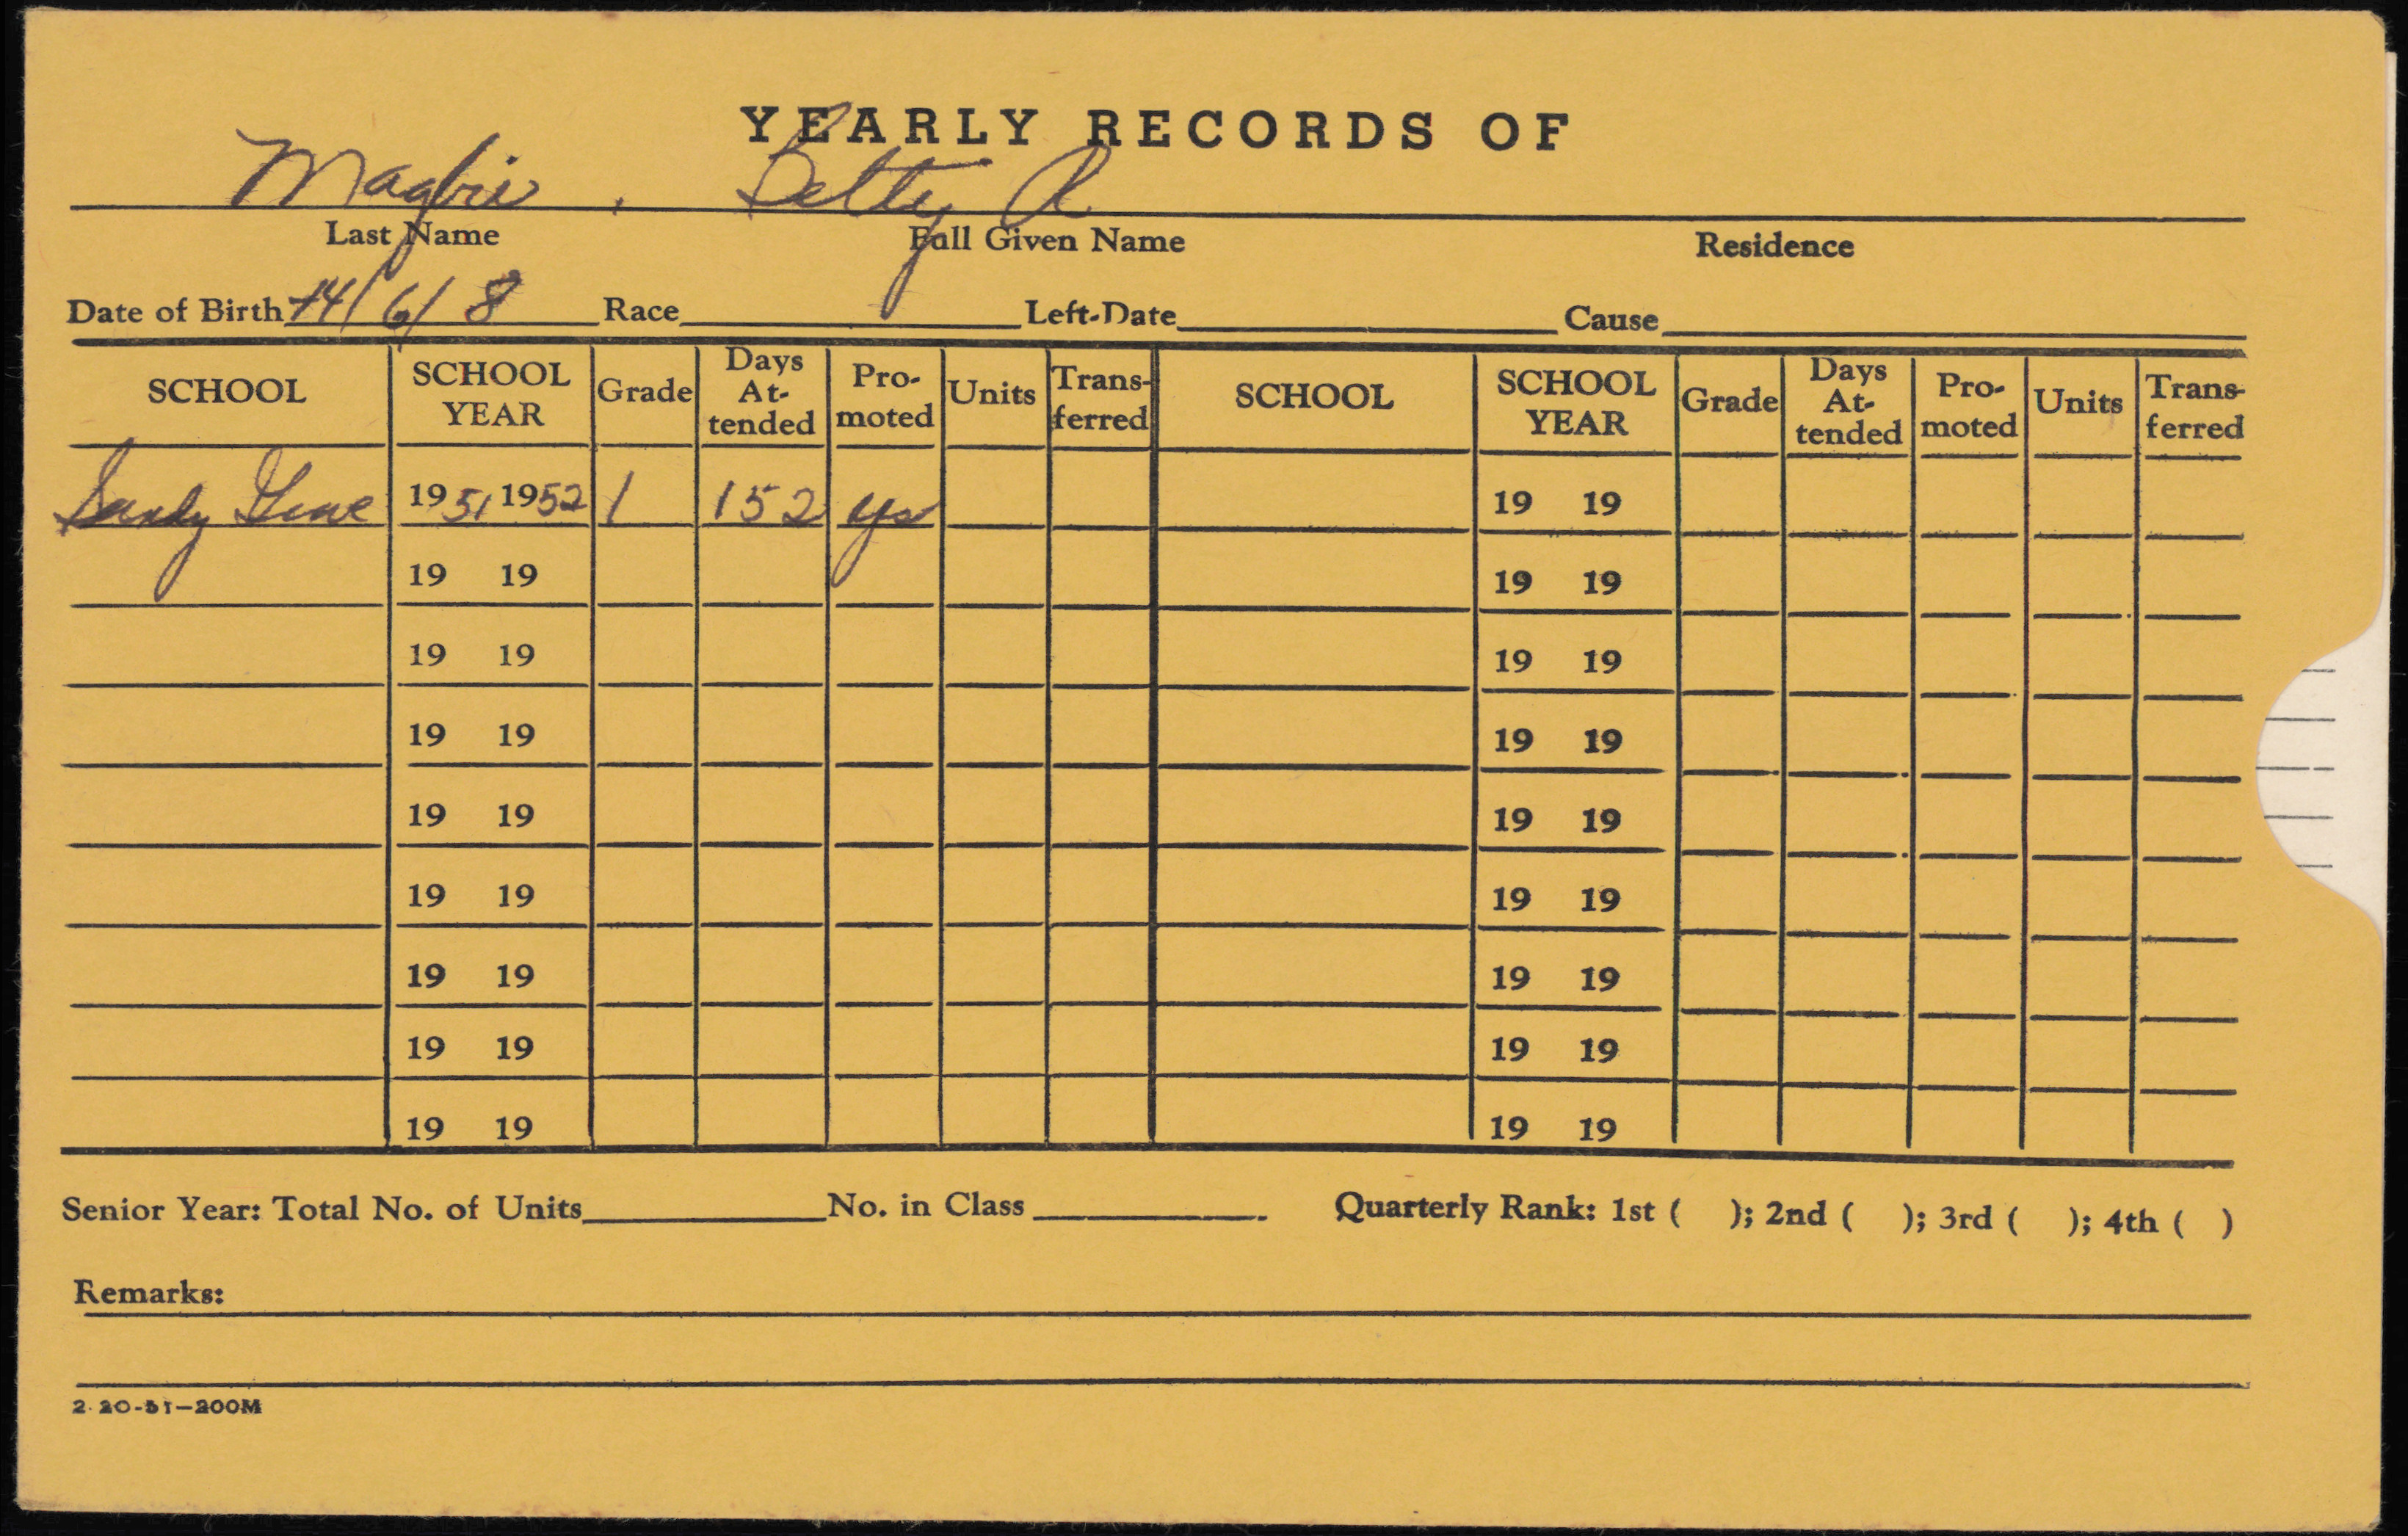 YEARLY RECORDS OF
Magbie, Betty A
Last Name Full Given Name Residence
Date of Birth 44/6/8 Race Left-Date Cause
SCHOOL SCHOOL YEAR Grade Days At-tended Pro-moted Units Trans-ferred SCHOOL SCHOOL YEAR Grade Days At-tended Pro-moted Units Trans-ferred
Sandy 1951 1952 1 152 yes 19 19
19 19 19 19
19 19 19 19
19 19 19 19
19 19 19 19
19 19 19 19
19 19 19 19
19 19 19 19
19 19 19 19
Senior Year: Total No. of Units No. in Class Quarterly Rank: 1st ( ); 2nd ( ); 3rd ( ); 4th ( )
Remarks:
2-20-51—200M